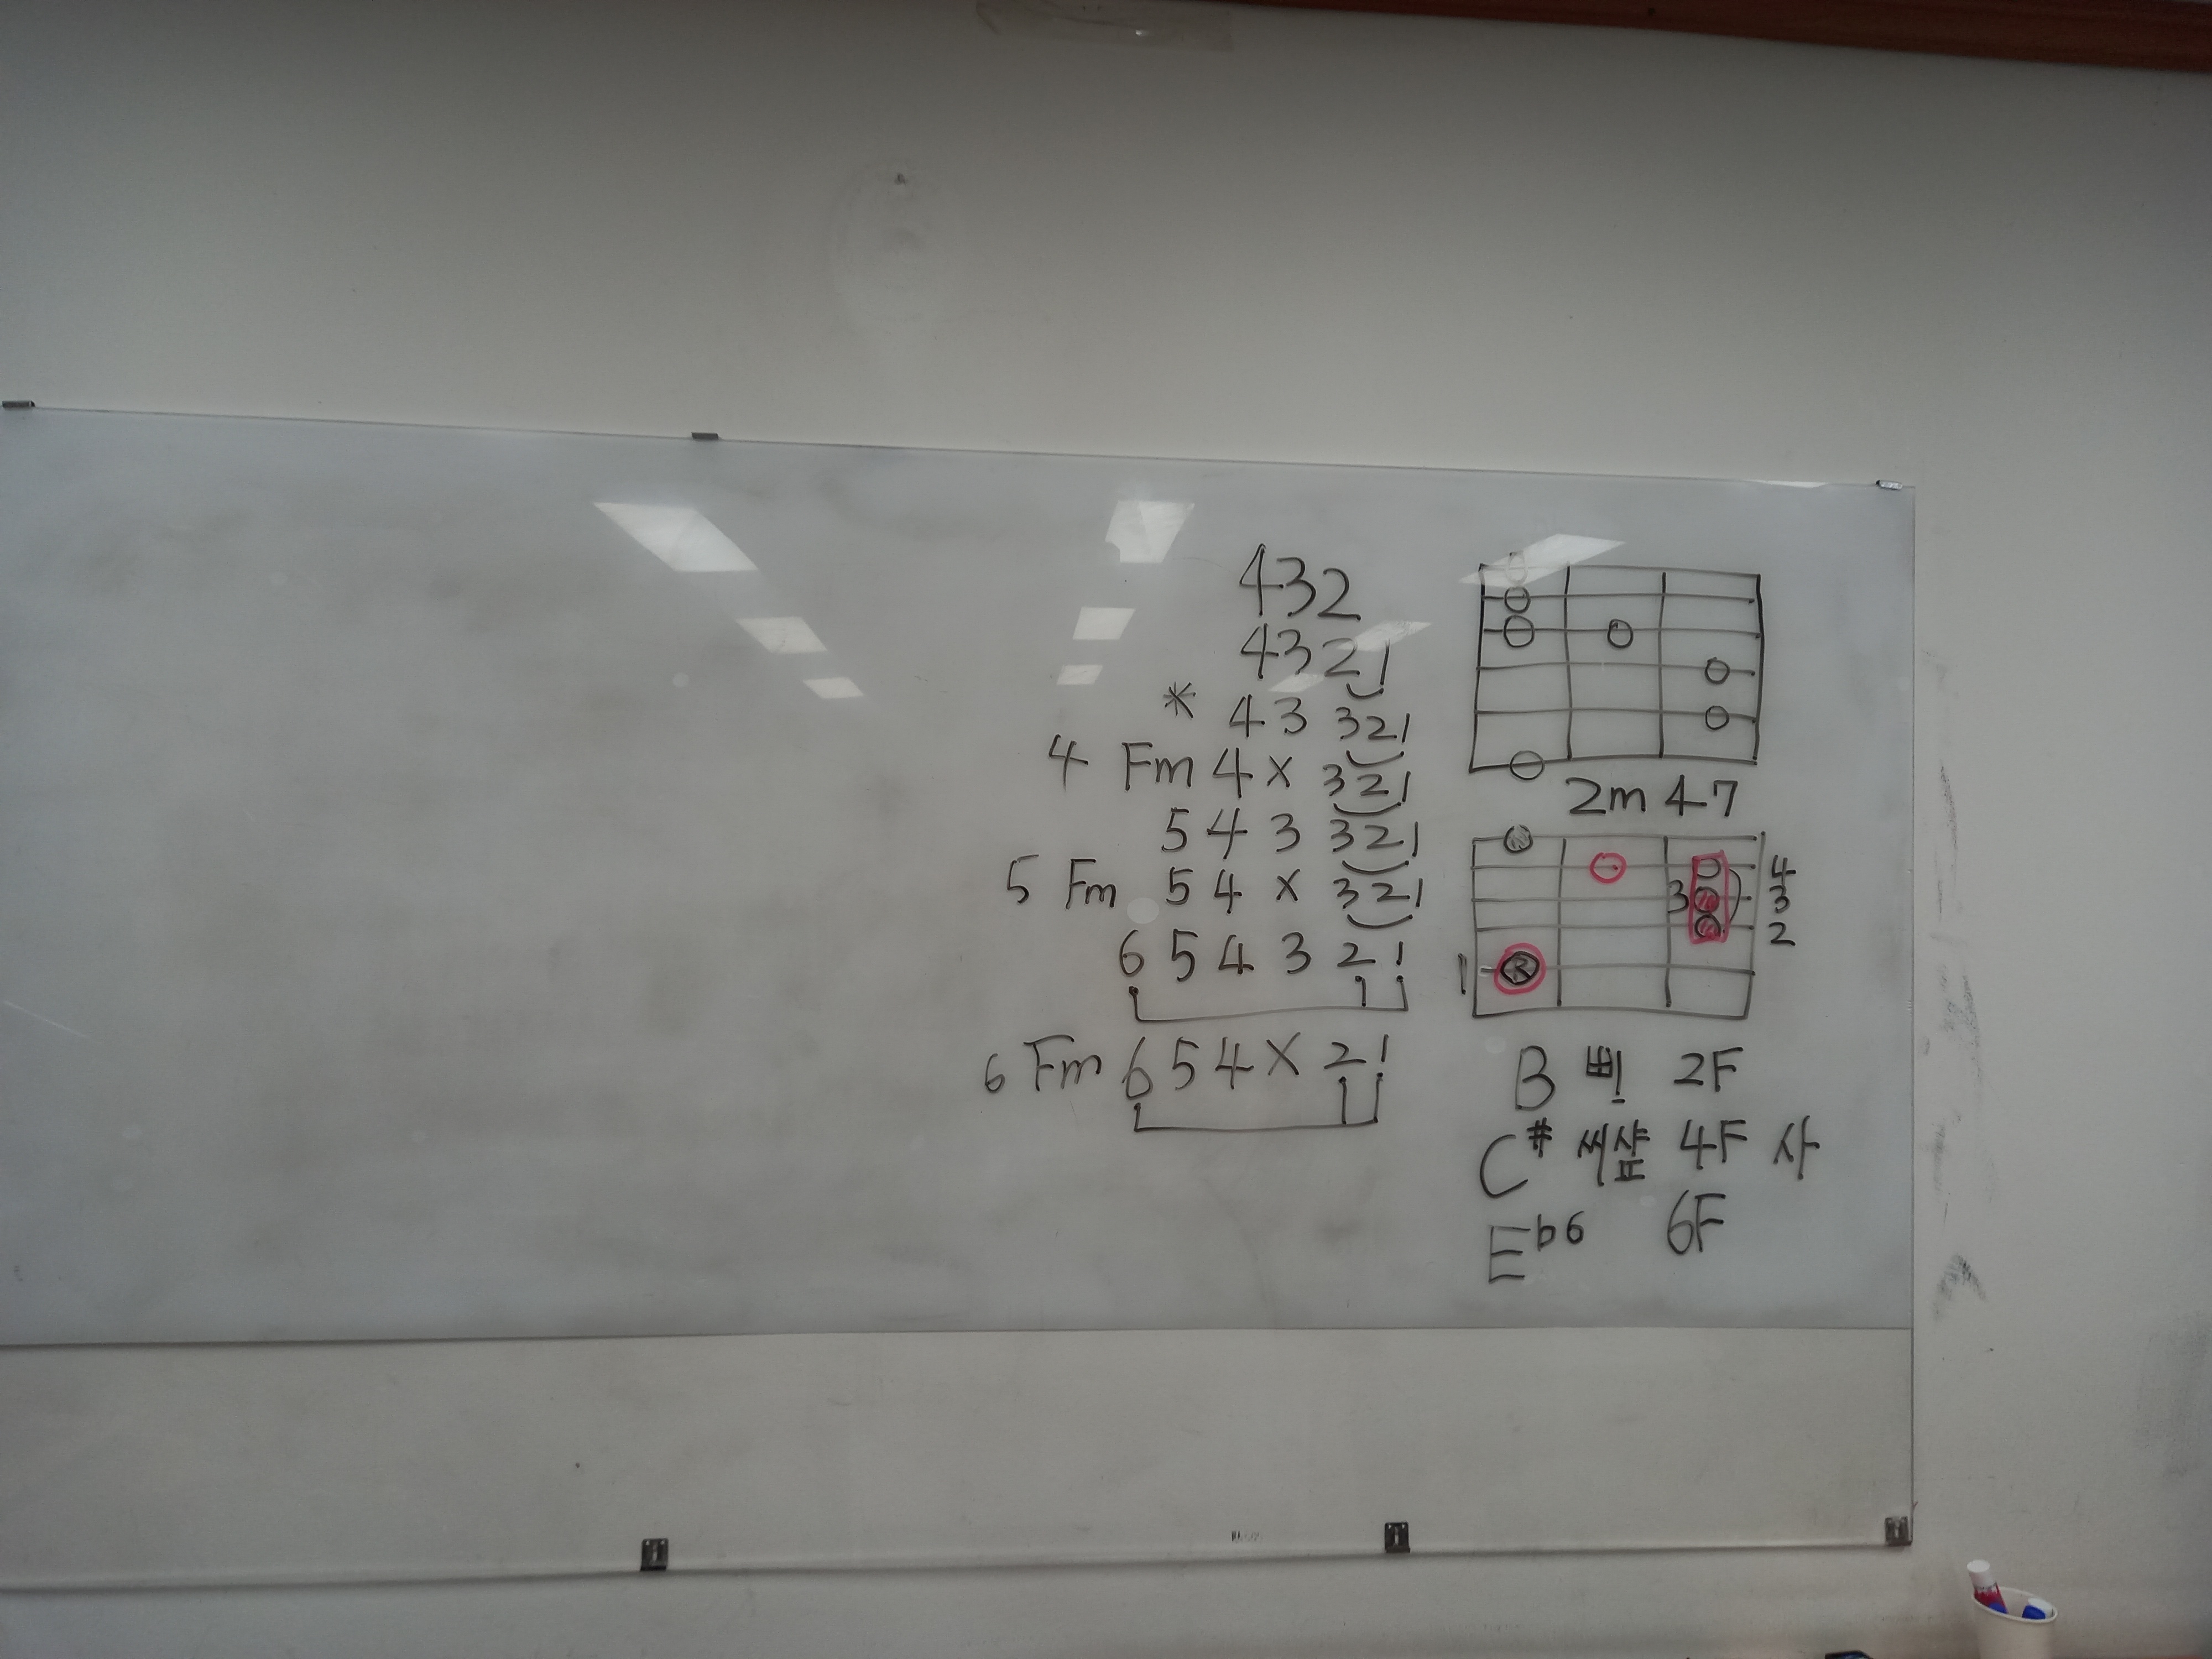 432
4321
* 43 321
4 Fm 4 x 321
5 4 3 321
5 Fm 5 4 x 321
6 5 4 3 2 1
6 Fm 6 5 4 X 2 1
2m 4-7
4
3 3
2
1
B 삔 2F
C# 씨샾 4F 사
Eb6 6F